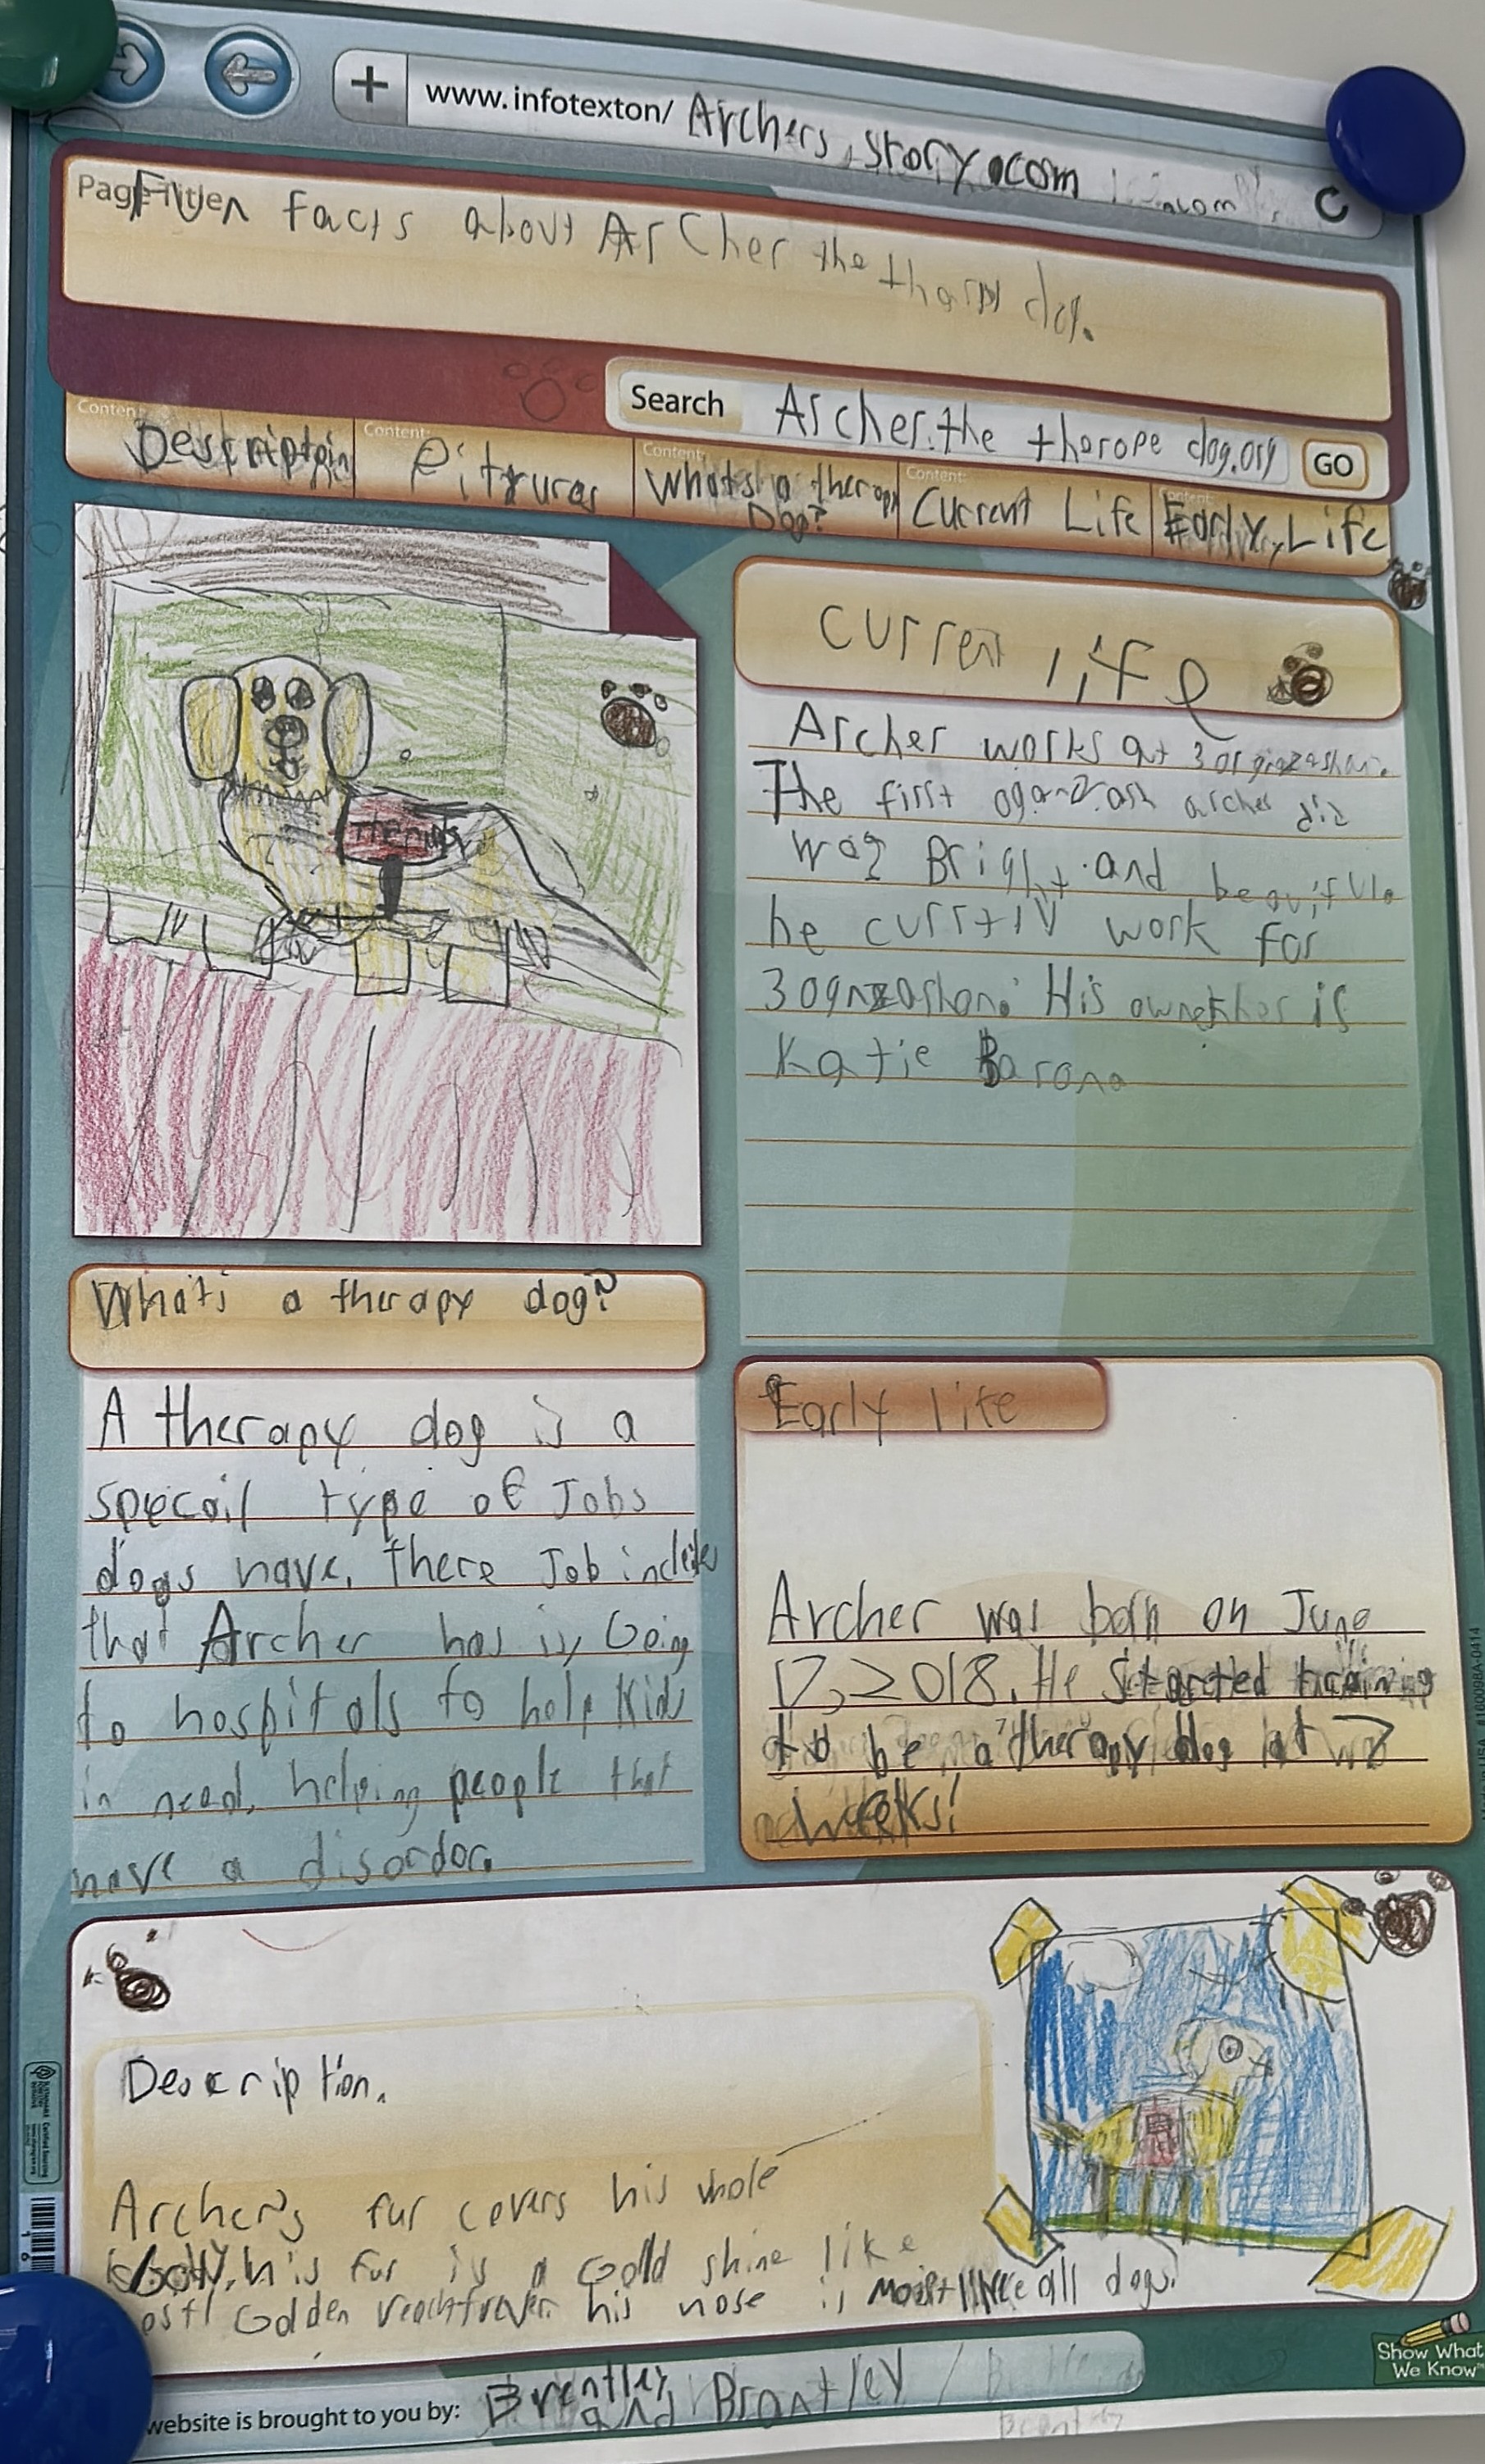 www.infotexton/ Archers, story.com
Page Title:
Fun facts about Archer the tharpy dog.
Search Archer.the therope dog.org GO
Content: Content: Content: Content: Content:
Description Pitruras Whats a therapy Dog? Current Life Early Life
Therapy
Current life
Archer works at 3 orginzashon.
The first oganzash archer did
was Bright and beauifule
he currtly work for
3 ognzashon. His is
Katie Barona
What's a therapy dog?
A therapy dog is a
specail type of Jobs
dogs have. there Job include
that Archer has is Going
to hospitals to help Kids
in need, helping people that
have a disordor.
Early life
Archer was born on June
17, 2018. He Started training
to be a therapy dog at 7
weeks!
Description.
Archer's fur covers his whole
body. his fur is a Gold shine like
Golden his nose is moist like all dogs.
website is brought to you by: Brentley and Brantley
Show What
We Know